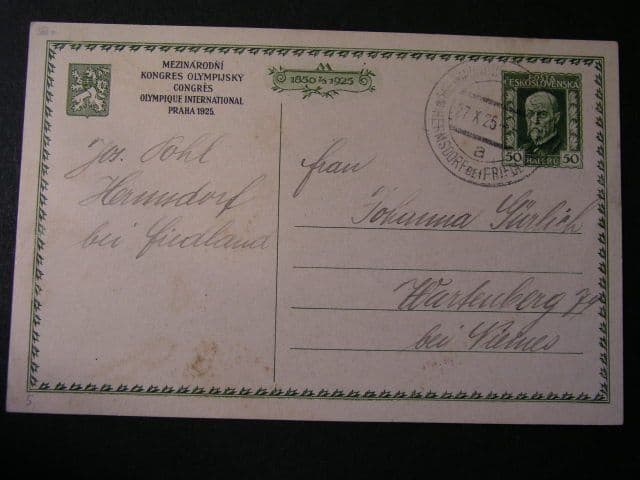 MEZINÁRODNÍ
KONGRES OLYMPIJSKÝ
CONGRÈS
OLYMPIQUE INTERNATIONAL
PRAHA 1925.
1850 7/3 1925
POŠTA
ČESKOSLOVENSKA
50 HALÉŘŮ 50
27.X.25
a
HERMSDORF BEI FRIEDL
Jos. Pohl
Hermsdorf
bei Friedland
Frau
Johanna Görlich
Wartenberg 79
bei Niemes
5